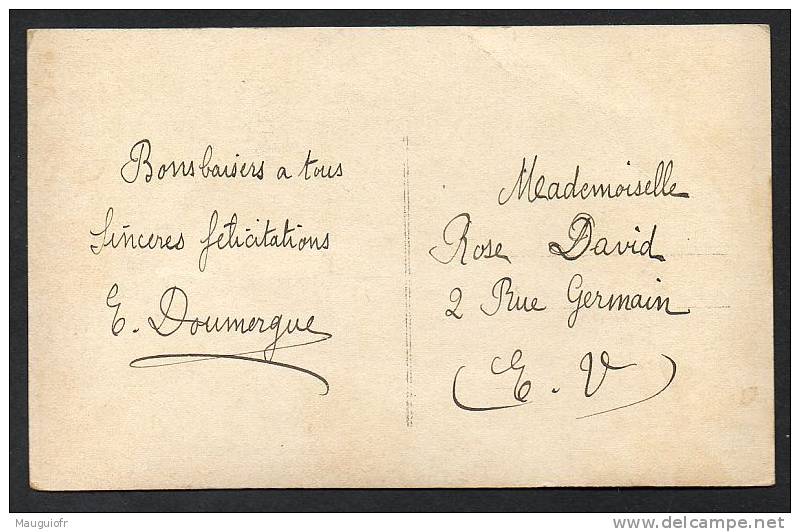 Bons baisers a tous
Sinceres félicitations
E. Doumergue
Mademoiselle
Rose David
2 Rue Germain
(E. V)
Mauguiofr
delcampe.net